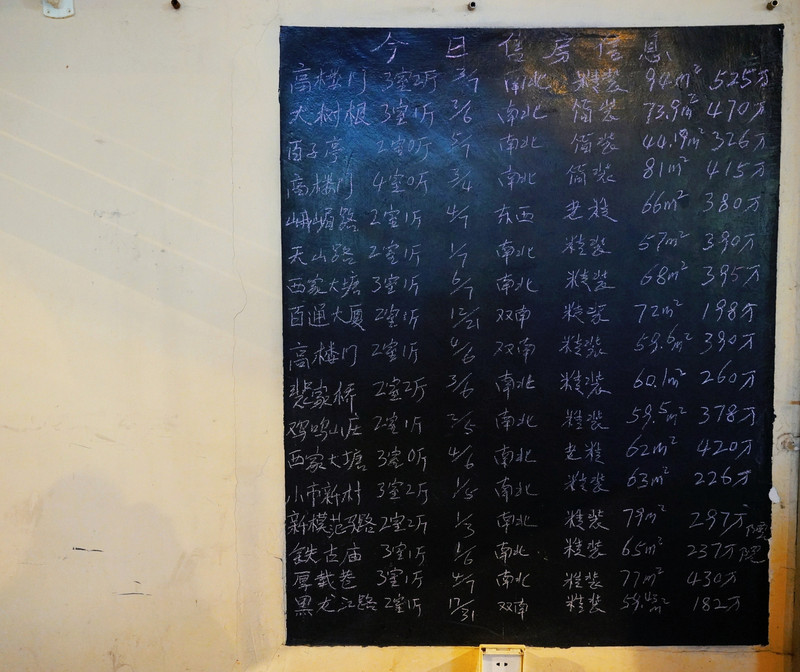 今日售房信息
高楼门 3室2厅 7/7 南北 精装 94m² 525万
大树根 3室1厅 3/6 南北 简装 73.9m² 470万
百子亭 2室0厅 5/7 南北 简装 44.19m² 326万
高楼门 4室0厅 3/4 南北 简装 81m² 415万
峨嵋路 2室1厅 4/7 东西 老精 66m² 380万
天山路 2室1厅 1/7 南北 精装 57m² 390万
西家大塘 3室1厅 6/7 南北 精装 68m² 395万
百通大厦 2室1厅 12/21 双南 精装 72m² 198万
高楼门 2室1厅 4/6 双南 精装 59.6m² 390万
裴家桥 2室2厅 3/6 南北 精装 60.1m² 260万
鸡鸣山庄 2室1厅 2/5 南北 精装 59.5m² 378万
西家大塘 3室0厅 4/6 南北 老精 62m² 420万
小市新村 3室2厅 1/5 南北 精装 63m² 226万
新模范马路 2室2厅 1/3 南北 精装 79m² 297万
铁古庙 3室1厅 1/6 南北 精装 65m² 237万
厚载巷 3室1厅 4/7 南北 精装 77m² 430万
黑龙江路 2室1厅 17/31 双南 精装 182万